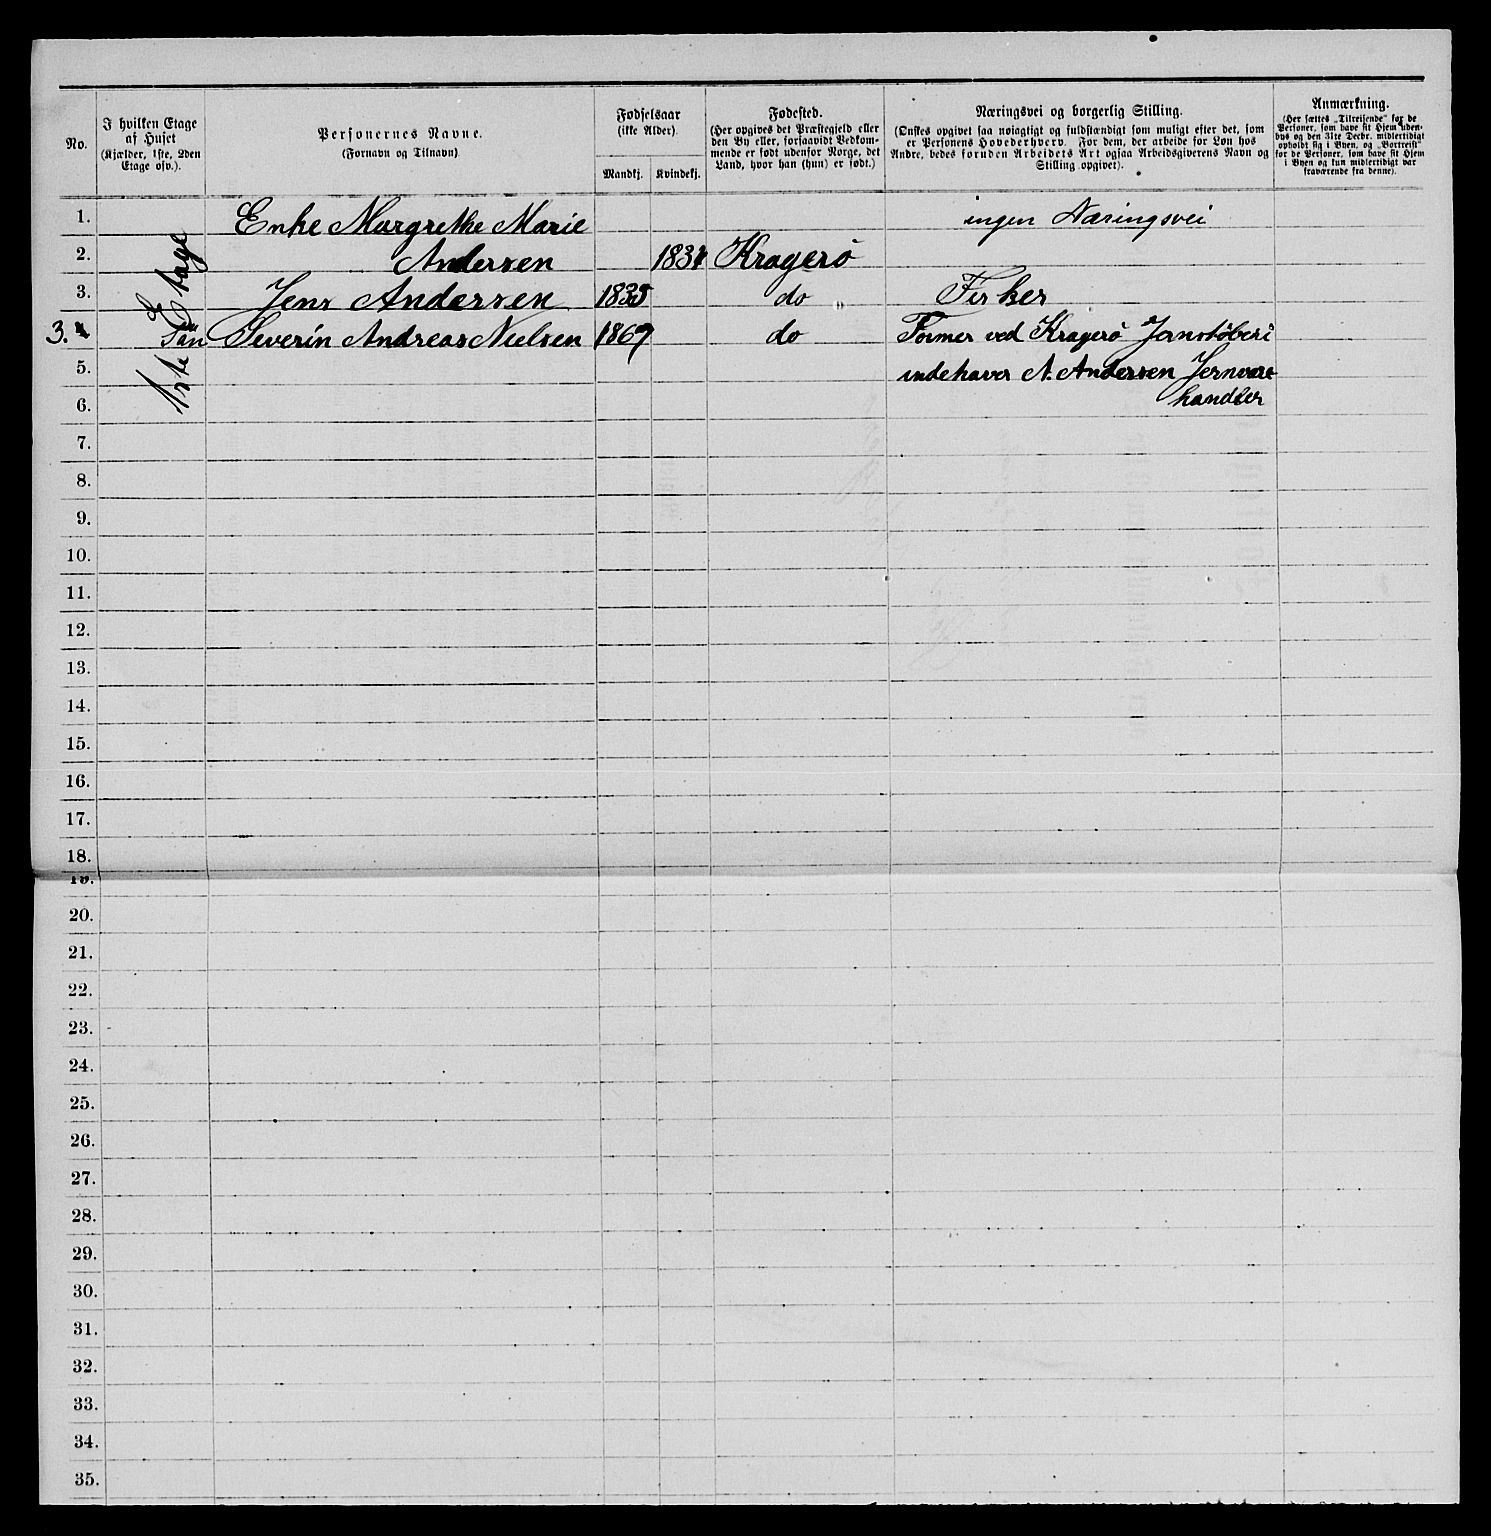 No.
I hvilken Etage
af Huset
(Kjælder, 1ste, 2den
Etage osv.).
Personernes Navne.
(Fornavn og Tilnavn)
Fødselsaar
(ikke Alder)
Mandkj. Kvindekj.
Fødested.
(Her opgives det Præstegjeld eller
den By eller, forsaavidt Vedkom-
mende er født udenfor Norge, det
Land, hvor han (hun) er født.)
Næringsvei og borgerlig Stilling.
(Ønskes opgivet saa nøiagtigt og fuldstændigt som muligt efter det, som
er Personens Hovederhverv. For dem, der arbeide for Løn hos
Andre, bedes foruden Arbeidets Art ogsaa Arbeidsgiverens Navn og
Stilling opgivet).
Anmærkning.
(Her sættes „Tilreisende“ for de
Personer, som have sit Hjem uden-
bys og den 31te Decbr. midlertidigt
opholdt sig i Byen, og „Bortreist“
for de Personer, som have sit Hjem
i Byen og kun midlertidigt var
fraværende fra denne).
1ste Etage
1. Enke Margrethe Marie ingen Næringsvei
2. Andersen Kragerö
3. Jens Andersen do „ Fisker
3. Sön Severin Andreas Nielsen 1867 do Former ved Kragerö Jernstöberi
5. indehaver N. Andersen Jernvare
6. handler
7.
8.
9.
10.
11.
12.
13.
14.
15.
16.
17.
18.
19.
20.
21.
22.
23.
24.
25.
26.
27.
28.
29.
30.
31.
32.
33.
34.
35.